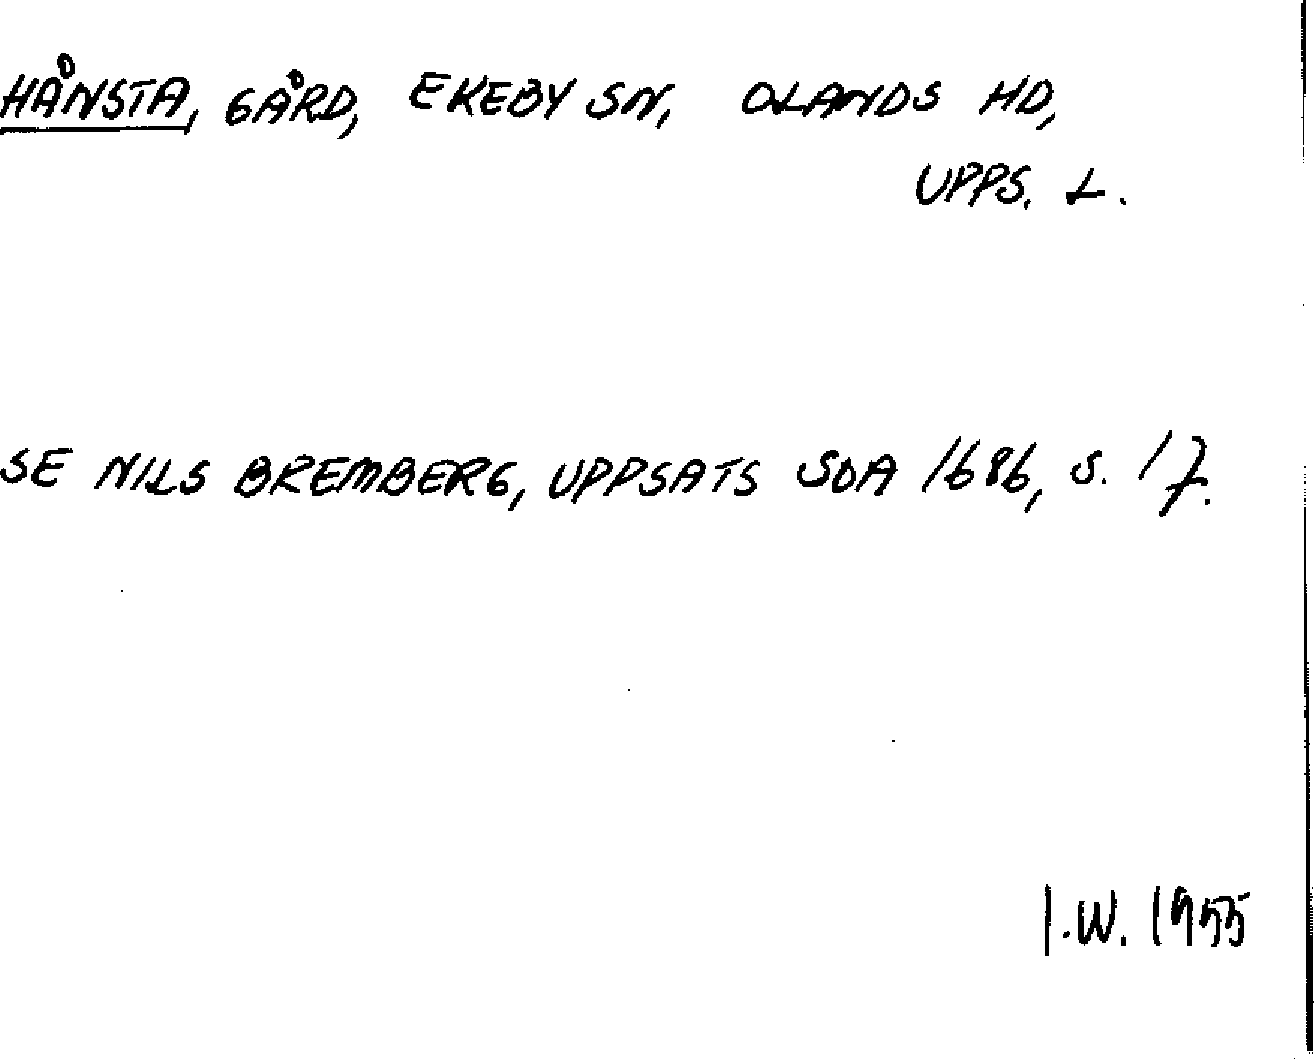 HÅNSTA, GÅRD, EKEBY SN, OLANDS HD,
UPPS. L.
SE NILS BREMBERG, UPPSATS SOA 1686, S. 17.
I.W. 1955